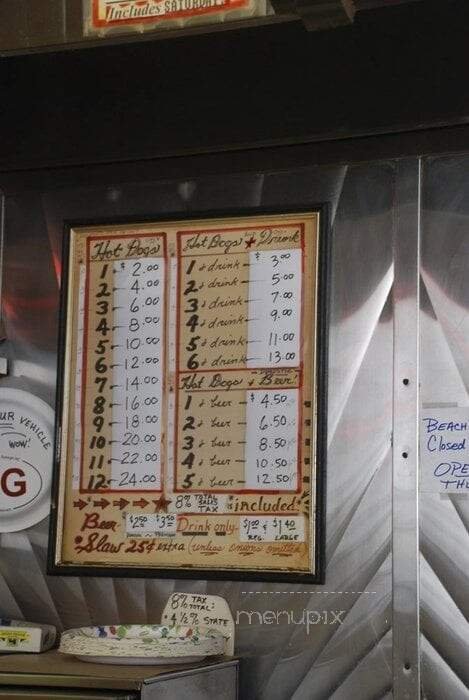 Includes SATURDAY
Hot Dogs
1 - $ 2.00
2 - 4.00
3 - 6.00
4 - 8.00
5 - 10.00
6 - 12.00
7 - 14.00
8 - 16.00
9 - 18.00
10 - 20.00
11 - 22.00
12 - 24.00
Hot Dogs + Drink
1 & drink - $ 3.00
2 & drink - 5.00
3 & drink - 7.00
4 & drink - 9.00
5 & drink - 11.00
6 & drink - 13.00
Hot Dogs + Beer!
1 & beer - $ 4.50
2 & beer - 6.50
3 & beer - 8.50
4 & beer - 10.50
5 & beer - 12.50
8% TOTAL SALES TAX included!
Beer $2.50 $3.50 Drink only $1.00 & $1.40
REG. LARGE
Slaw 25¢ extra unless onions omitted
UR VEHICLE
WOW!
G
BEACH
Closed
OPE
THU
8% TAX
TOTAL:
4 ½% STATE
menupix